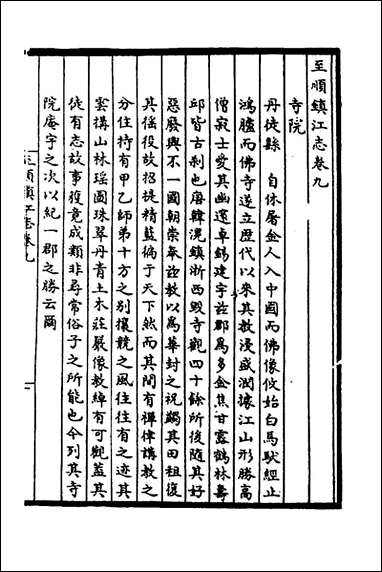 至順鎮江志卷九
寺院
丹徒縣　自休屠金人入中國而佛像攸始白馬馱經止
鴻臚而佛寺遂立歷代以來其教浸盛潤據江山形勝高
僧寂士愛其幽邃卓錫建宇茲郡為多金焦甘露鶴林壽
邱皆古刹也唐韓滉鎮浙西毀寺觀四十餘所後隨其好
惡廢興不一國朝崇奉茲教以為華封之祝蠲其田租復
其徭役故招提精藍徧于天下然而其間有禪律講教之
分住持有甲乙師弟十方之别攘競之風往往有之迹其
雲搆山林瑶圖珠翠丹青土木莊嚴像教綽有可觀蓋其
徒有志故事復竟成類非尋常俗子之所能也今列其寺
院庵宇之次以紀一郡之勝云爾
至順鎮江志卷九